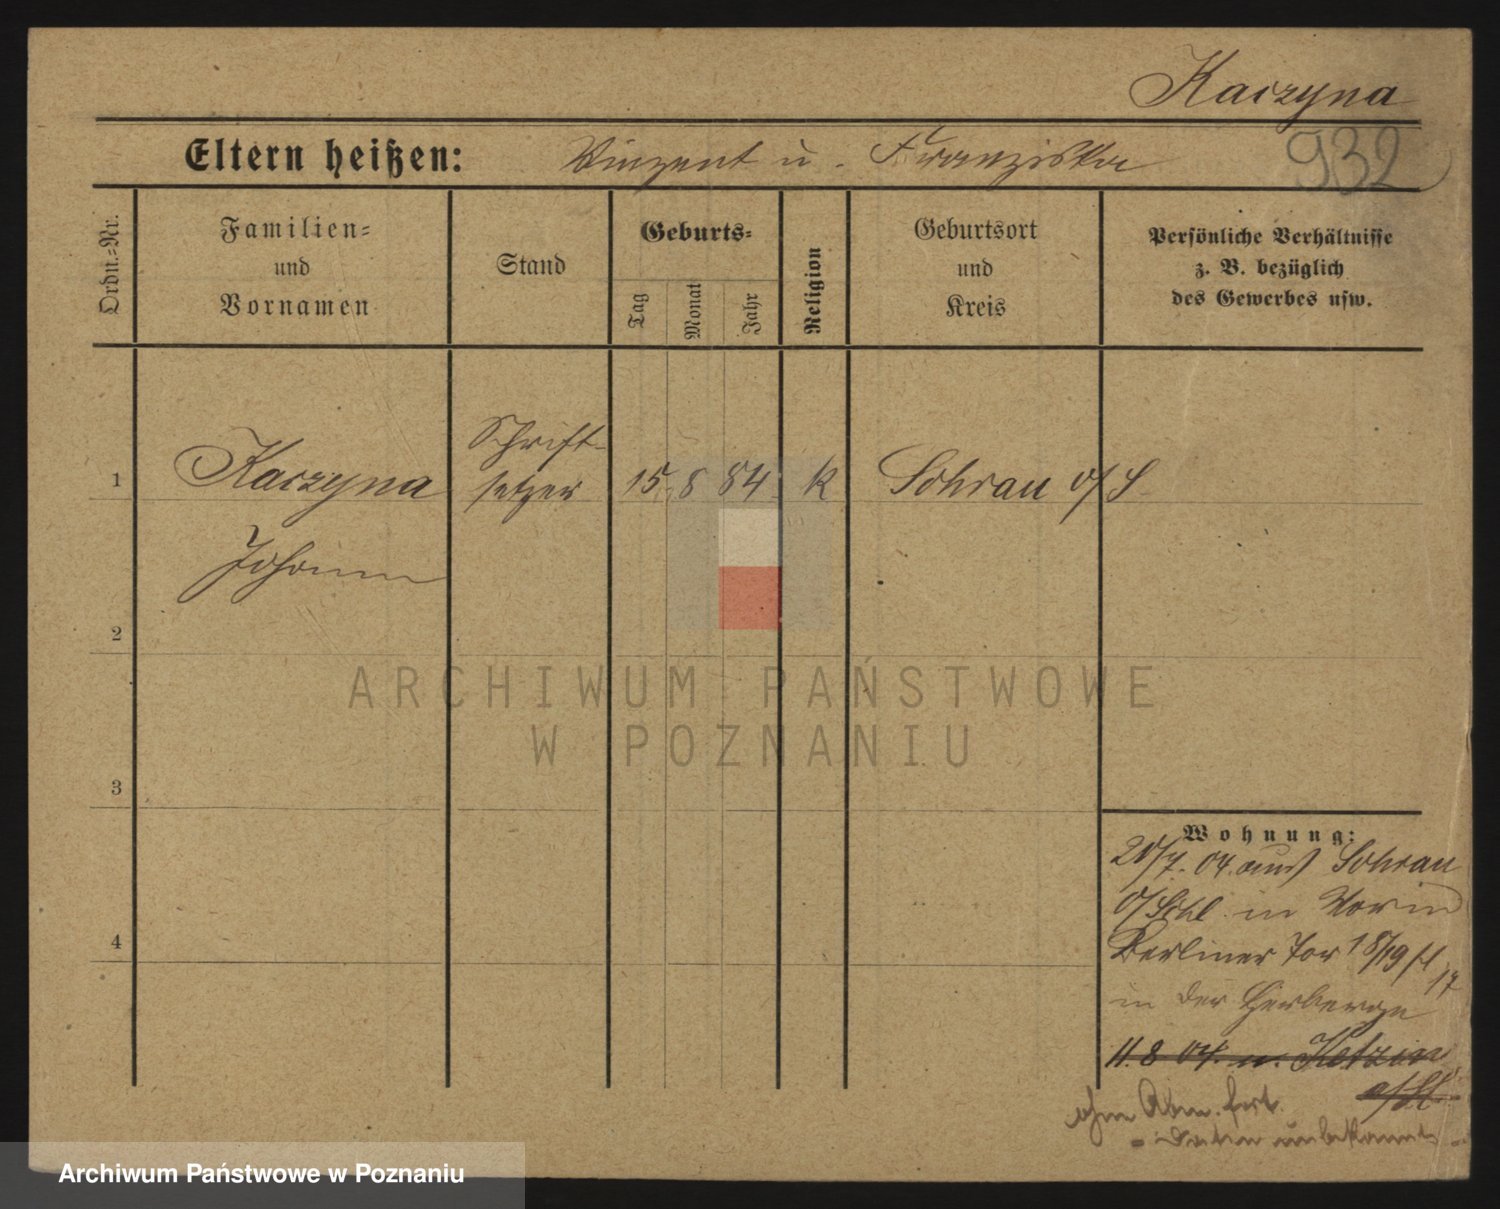 Kaczyna
932
Eltern heißen: Vinzent u. Franziska
Ordn.-Nr.
Familien-
und
Vornamen
Stand
Geburts-
Tag
Monat
Jahr
Religion
Geburtsort
und
Kreis
Persönliche Verhältnisse
z. B. bezüglich
des Gewerbes usw.
Schrift-
1 Kaczyna setzer 15 8 84 K Sohrau O/S
Johann
2
ARCHIWUM PAŃSTWOWE
W POZNANIU
3
Wohnung:
20/7. 04 aus Sohrau
O/Schl. in
Berliner Tor 18/19
17
in der Herberge
11. 8 04. n. Ketzin
ohne Abm. fort.
- Daten unbekannt -
4
Archiwum Państwowe w Poznaniu